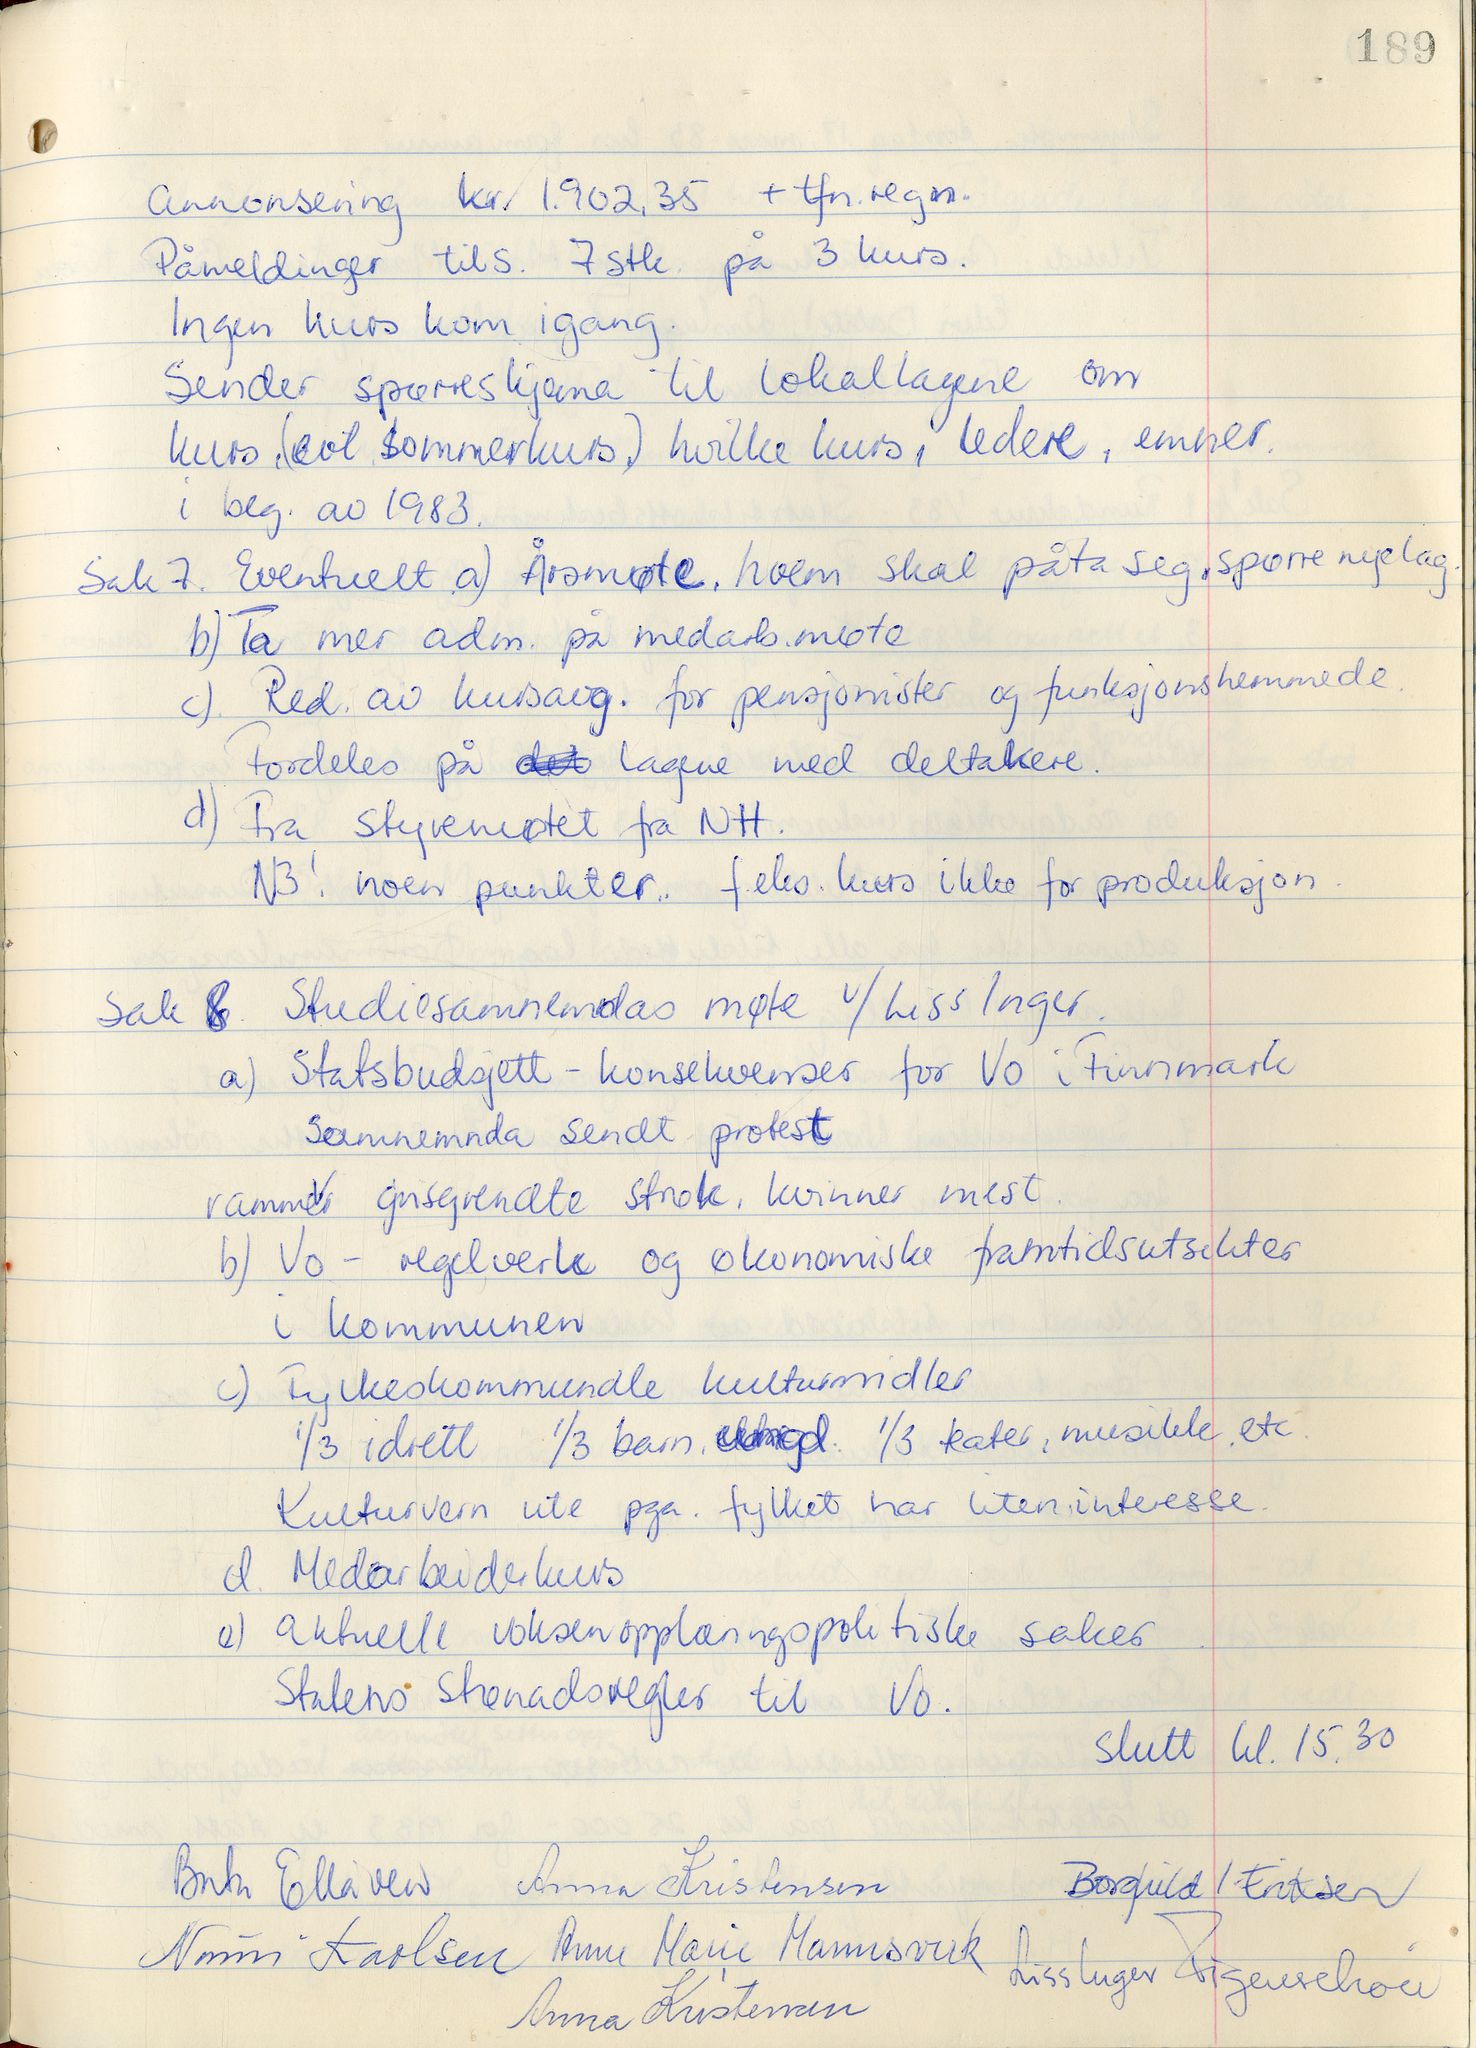 189
Annonsering kr. 1.902,35 + tfn.regn.
Påmeldinger tils. 7 stk. på 3 kurs.
Ingen kurs kom igang.
Sender spørreskjema til lokallagene om
kurs, (evt. sommerkurs,) hvilke kurs, ledere, emner.
i beg. av 1983.
Sak 7. Eventuelt a) Årsmøte, hvem skal påta seg, spørre nye lag.
b) Ta mer adm. på medarb.møte
c) Red. av kursavg. for pensjonister og funksjonshemmede.
Fordeles på lagene med deltakere.
d) Fra styremøtet fra NH.
NB! noen punkter.. f.eks. kurs ikke for produksjon.
Sak 8. Studiesamnemdas møte v/ Liss Inger.
a) Statsbudsjett - konsekvenser for Vo i Finnmark
Samnemnda sendt protest
rammer grisgrendte strøk, kvinner mest.
b) Vo - regelverk og økonomiske framtidsutsikter
i kommunen
c) Fylkeskommunale kulturmidler
1/3 idrett 1/3 barn, ungd. 1/3 teater, musikk, etc.
Kulturvern ute pga. fylket har liten interesse.
d. Medarbeiderkurs
e) Aktuelle voksenopplæringspolitiske saker.
Statens til Vo.
Slutt kl. 15.30
Ellaven Anna Kristensen Borghild Eriksen
Nanni Karlsen Anne Marie Mannsverk Liss Inger Figenschou
Anna Kristensen